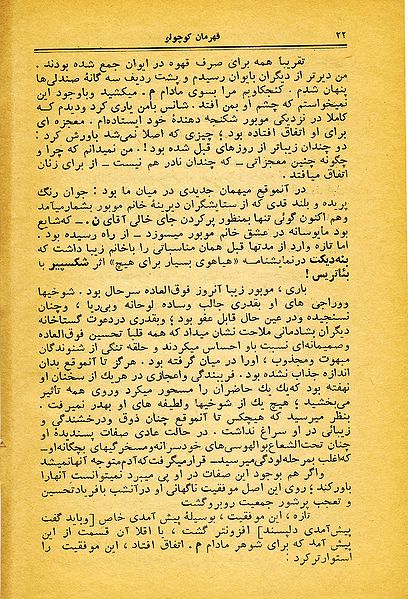 ۲۲ قهرمان کوچولو
تقریباً همه برای صرف قهوه در ایوان جمع شده بودند.
من دیرتر از دیگران بایوان رسیدم و پشت ردیف سه گانهٔ صندلی‌ها
پنهان شدم. کنجکاویم مرا بسوی مادام م. میکشید وباوجود این
نمیخواستم که چشم او بمن افتد. شانس بامن یاری کرد ودیدم که
کاملا در نزدیکی موبور شکنجه دهندهٔ خود ایستاده‌ام. معجزه ای
برای او اتفاق افتاده بود؛ چیزی که اصلا نمی‌شد باورش کرد:
دو چندان زیباتر از روزهای قبل شده بود!. من نمیدانم که چرا و
چگونه چنین معجزاتی ـ که چندان نادر هم نیست ـ از برای زنان
اتفاق میافتد.
در آنموقع میهمان جدیدی در میان ما بود: جوان رنگ
پریده و بلند قدی که از ستایشگران دیرینهٔ خانم موبور بشمارمیآمد
وهم اکنون گوئی تنها بمنظور پرکردن جای خالی آقای ن. ـ که‌شایع
بود مأیوسانه در عشق خانم موبور میسوزد ـ از راه رسیده بود.
اما تازه وارد از مدتها قبل همان مناسباتی را باخانم زیبا داشت که
بنه‌دیکت درنمایشنامه «هیاهوی بسیار برای هیچ» اثر شکسپیر با
بئاتریس!
باری، موبور زیبا آنروز فوق‌العاده سرحال بود. شوخیها
ووراجی های او بقدری جالب وساده لوحانه وبی‌ریا، وچنان
نسنجیده ودر عین حال قابل عفو بود؛ وبقدری دردعوت گستاخانه
دیگران بشادمانی ملاحت نشان میداد که همه قلباً تحسین فوق‌العاده
وصمیمانه‌ای نسبت باو احساس میکردند و حلقه تنگی از شنوندگان
مبهوت ومجذوب، اورا در میان گرفته بود. هرگز تا آنموقع بدان
اندازه جذاب نشده بود. فریبندگی واعجازی در هریك از سخنان او
نهفته بود که‌یك یك حاضران را مسحور میکرد وروی همه تأثیر
می‌بخشید؛ هیچ یك از شوخیها ولطیفه های او بهدر نمیرفت.
بنظر میرسید که هیچکس تا آنموقع چنان ذوق ودرخشندگی و
زیبائی در او سراغ نداشت. در حالت عادی صفات پسندیدهٔ او
چنان تحت‌الشعاع‌بوالهوسی‌های خودسرانه‌ومسخرگیهای بچگانه‌او ـ
که‌اغلب بمرحله‌لودگی‌میرسید ـ قرارمیگرفت‌که‌آدم‌متوجه آنهانمیشد
واگر هم بوجود این صفات در او پی میبرد نمیتوانست آنهارا
باورکند؛ روی این اصل موفقیت ناگهانی او درآنشب بافریادتحسین
و تعجب پرشور جمعیت روبروگشت
تازه، این موفقیت، بوسیلهٔ پیش آمدی خاص [وباید گفت
پیش‌آمدی دلپسند] افزونتر گشت، یا اقلا آن قسمت از این
پیش آمد که برای شوهر مادام م. اتفاق افتاد، این موفقیت را
استوارتر کرد: